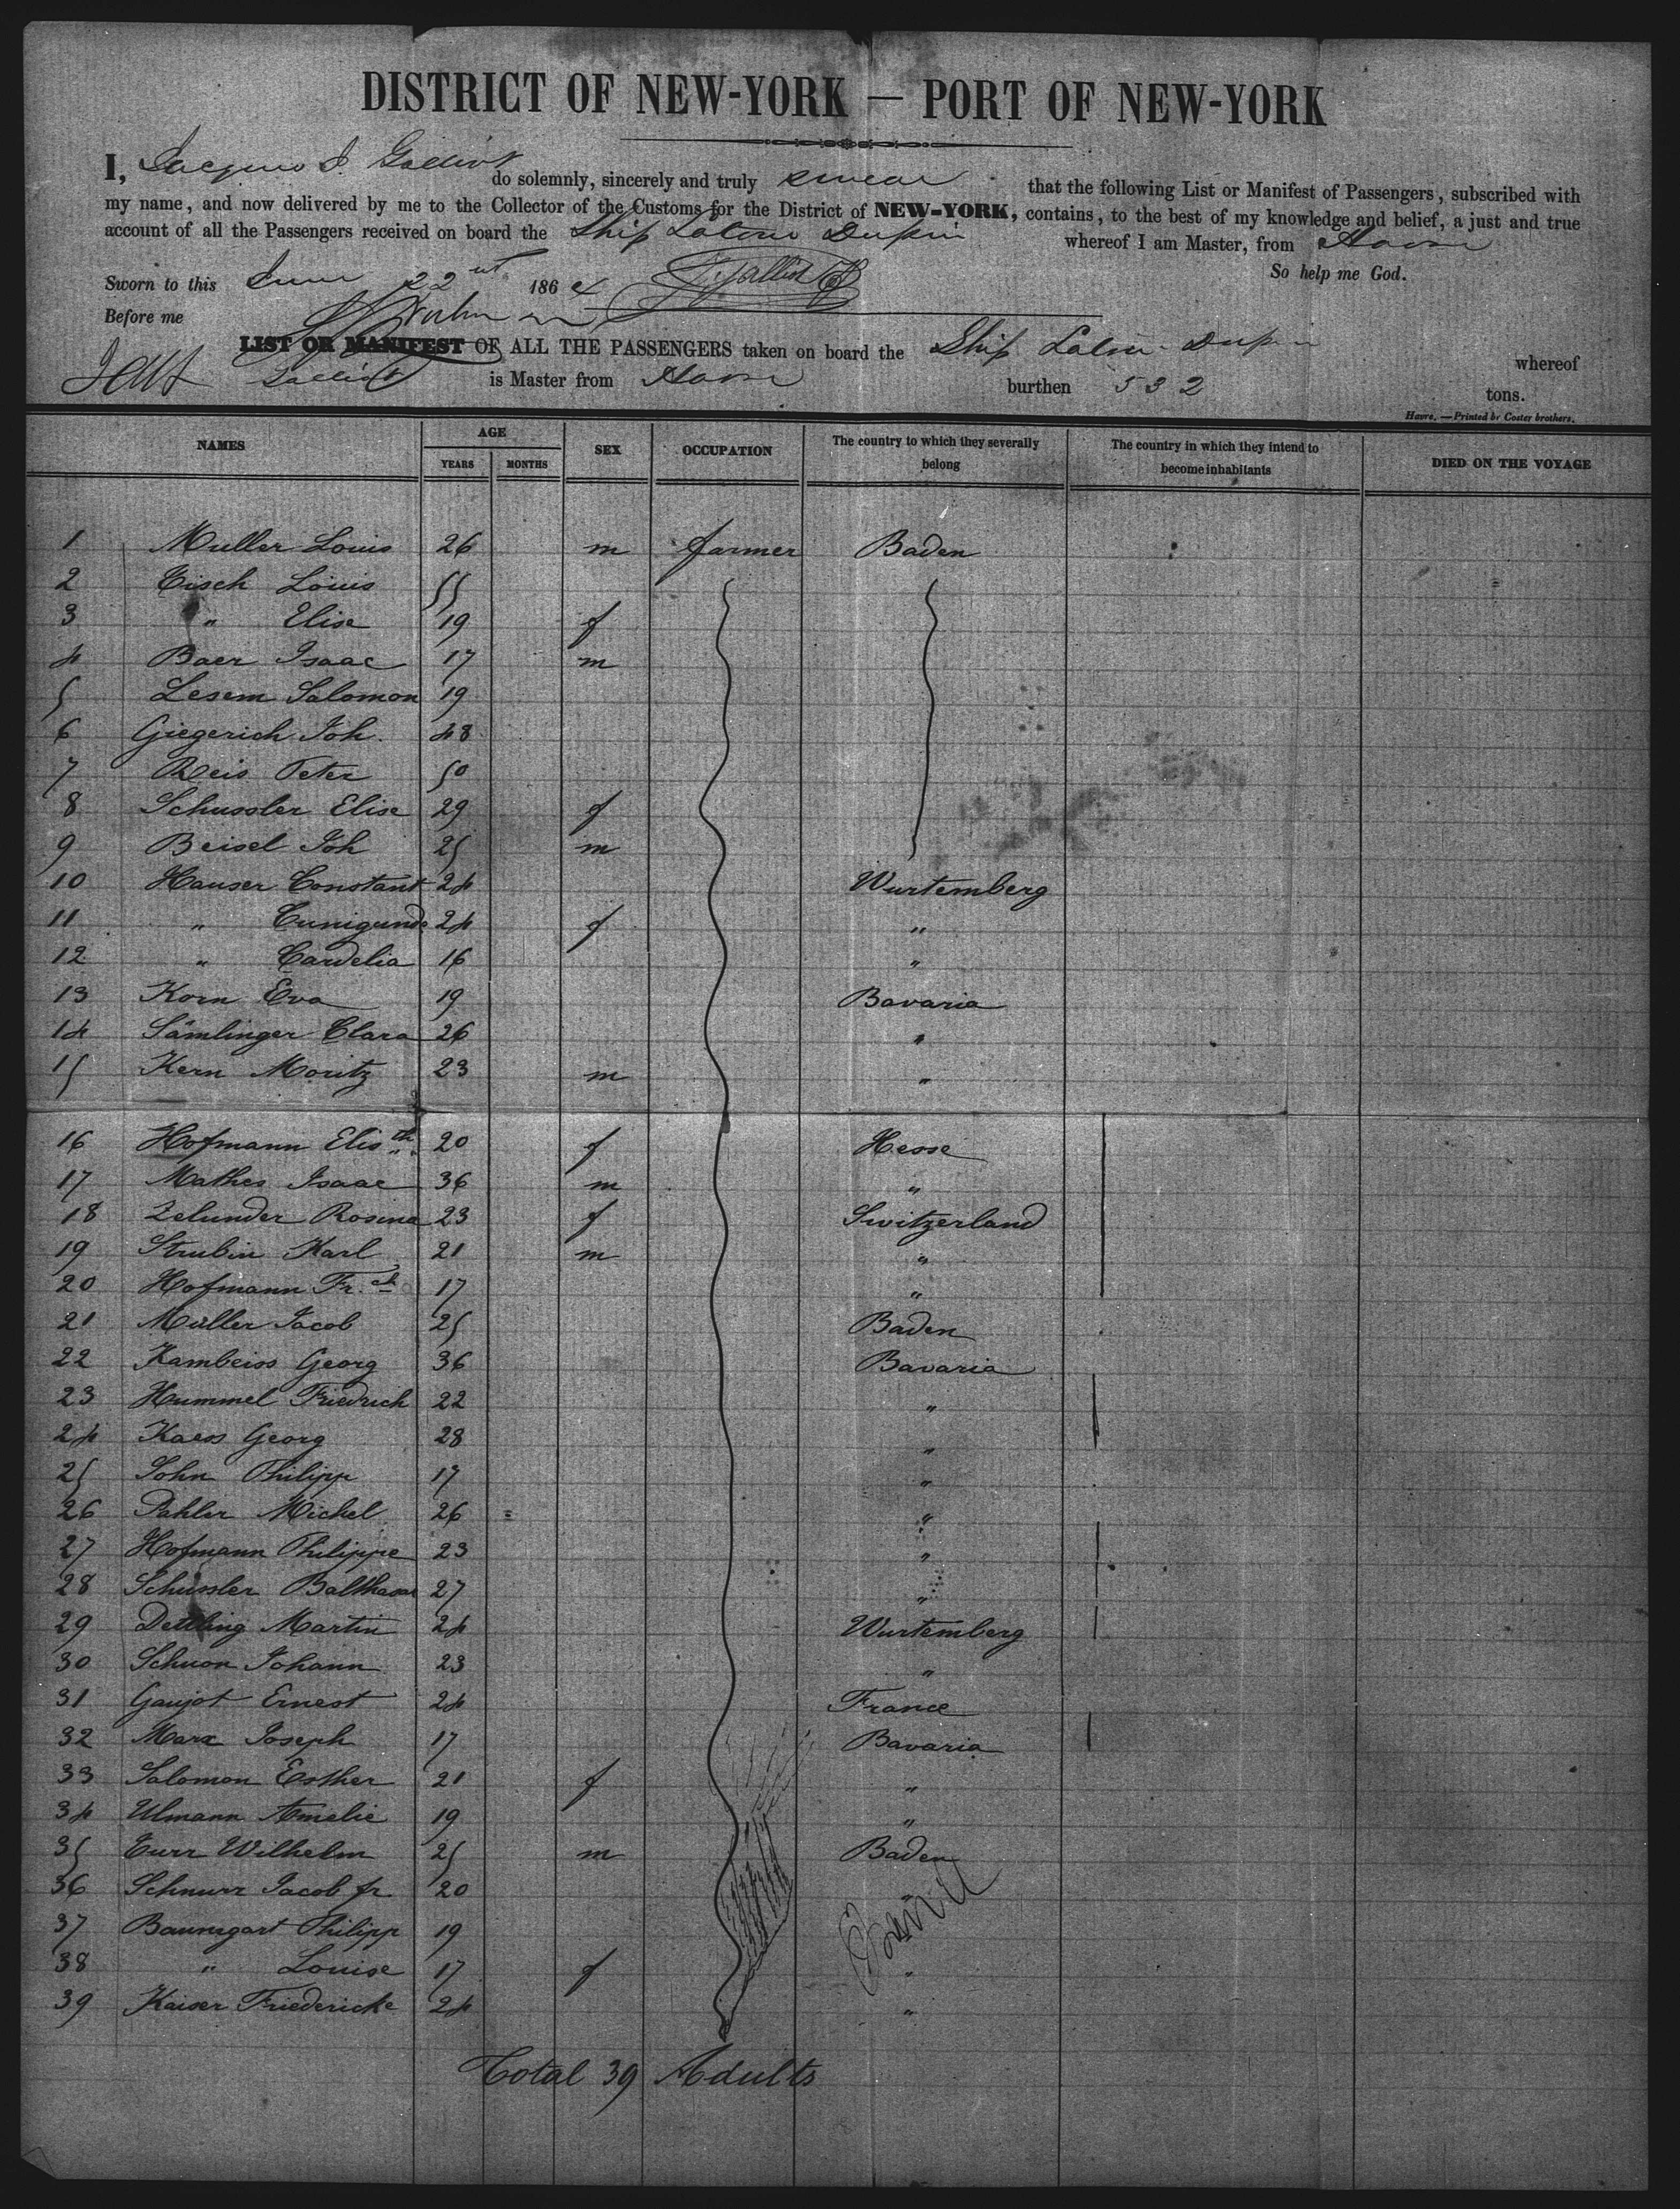 DISTRICT OF NEW-YORK — PORT OF NEW-YORK
I, Jacques J. Galliot do solemnly, sincerely and truly swear that the following List or Manifest of Passengers, subscribed with
my name, and now delivered by me to the Collector of the Customs for the District of NEW-YORK, contains, to the best of my knowledge and belief, a just and true
account of all the Passengers received on board the Ship Dupin whereof I am Master, from Havre
So help me God.
Sworn to this June 22 1864 J. Galliot
Before me
LIST OR MANIFEST OF ALL THE PASSENGERS taken on board the Ship Dupin whereof
Galliot is Master from Havre burthen 532 tons.
Havre. — Printed by Coster brothers.
NAMES AGE YEARS MONTHS SEX OCCUPATION The country to which they severally belong The country in which they intend to become inhabitants DIED ON THE VOYAGE
1 Muller Louis 26 m farmer Baden
2 Eisch Louis 55
3 " Elise 19 f
4 Baer Isaac 17 m
5 Lesem Salomon 19
6 Giegerich Joh. 48
7 Reis Peter 50
8 Schussler Elise 29 f
9 Beisel Joh 25 m
10 Hauser Constant 24 Wurtemberg
11 " Cunigunde 24 f "
12 " Cardelia 16 "
13 Korn Eva 19 Bavaria
14 Sämlinger Clara 26 "
15 Kern Moritz 23 m "
16 Hofmann Elis.th 20 f Hesse
17 Mathes Isaac 36 m "
18 Zelunder Rosina 23 f Switzerland
19 Strubin Karl 21 m "
20 Hofmann Fr.ch 17 "
21 Müller Jacob 25 Baden
22 Kambeiss Georg 36 Bavaria
23 Hummel Friedrich 22 "
24 Kaess Georg 28 "
25 John Philipp 17 "
26 Pahler Michel 26 = "
27 Hofmann Philippe 23 "
28 Schussler Balthasar 27 "
29 Dettling Martin 24 Wurtemberg
30 Schuon Johann 23 "
31 Gaujot Ernest 24 France
32 Marx Joseph 17 Bavaria
33 Salomon Esther 21 f "
34 Ulmann Amelie 19 "
35 Eurr Wilhelm 25 m Baden
36 Schnurr Jacob jr. 20 "
37 Baumgart Philipp 19
38 " Louise 17 f "
39 Kaiser Friedericke 24 "
Total 39 Adults